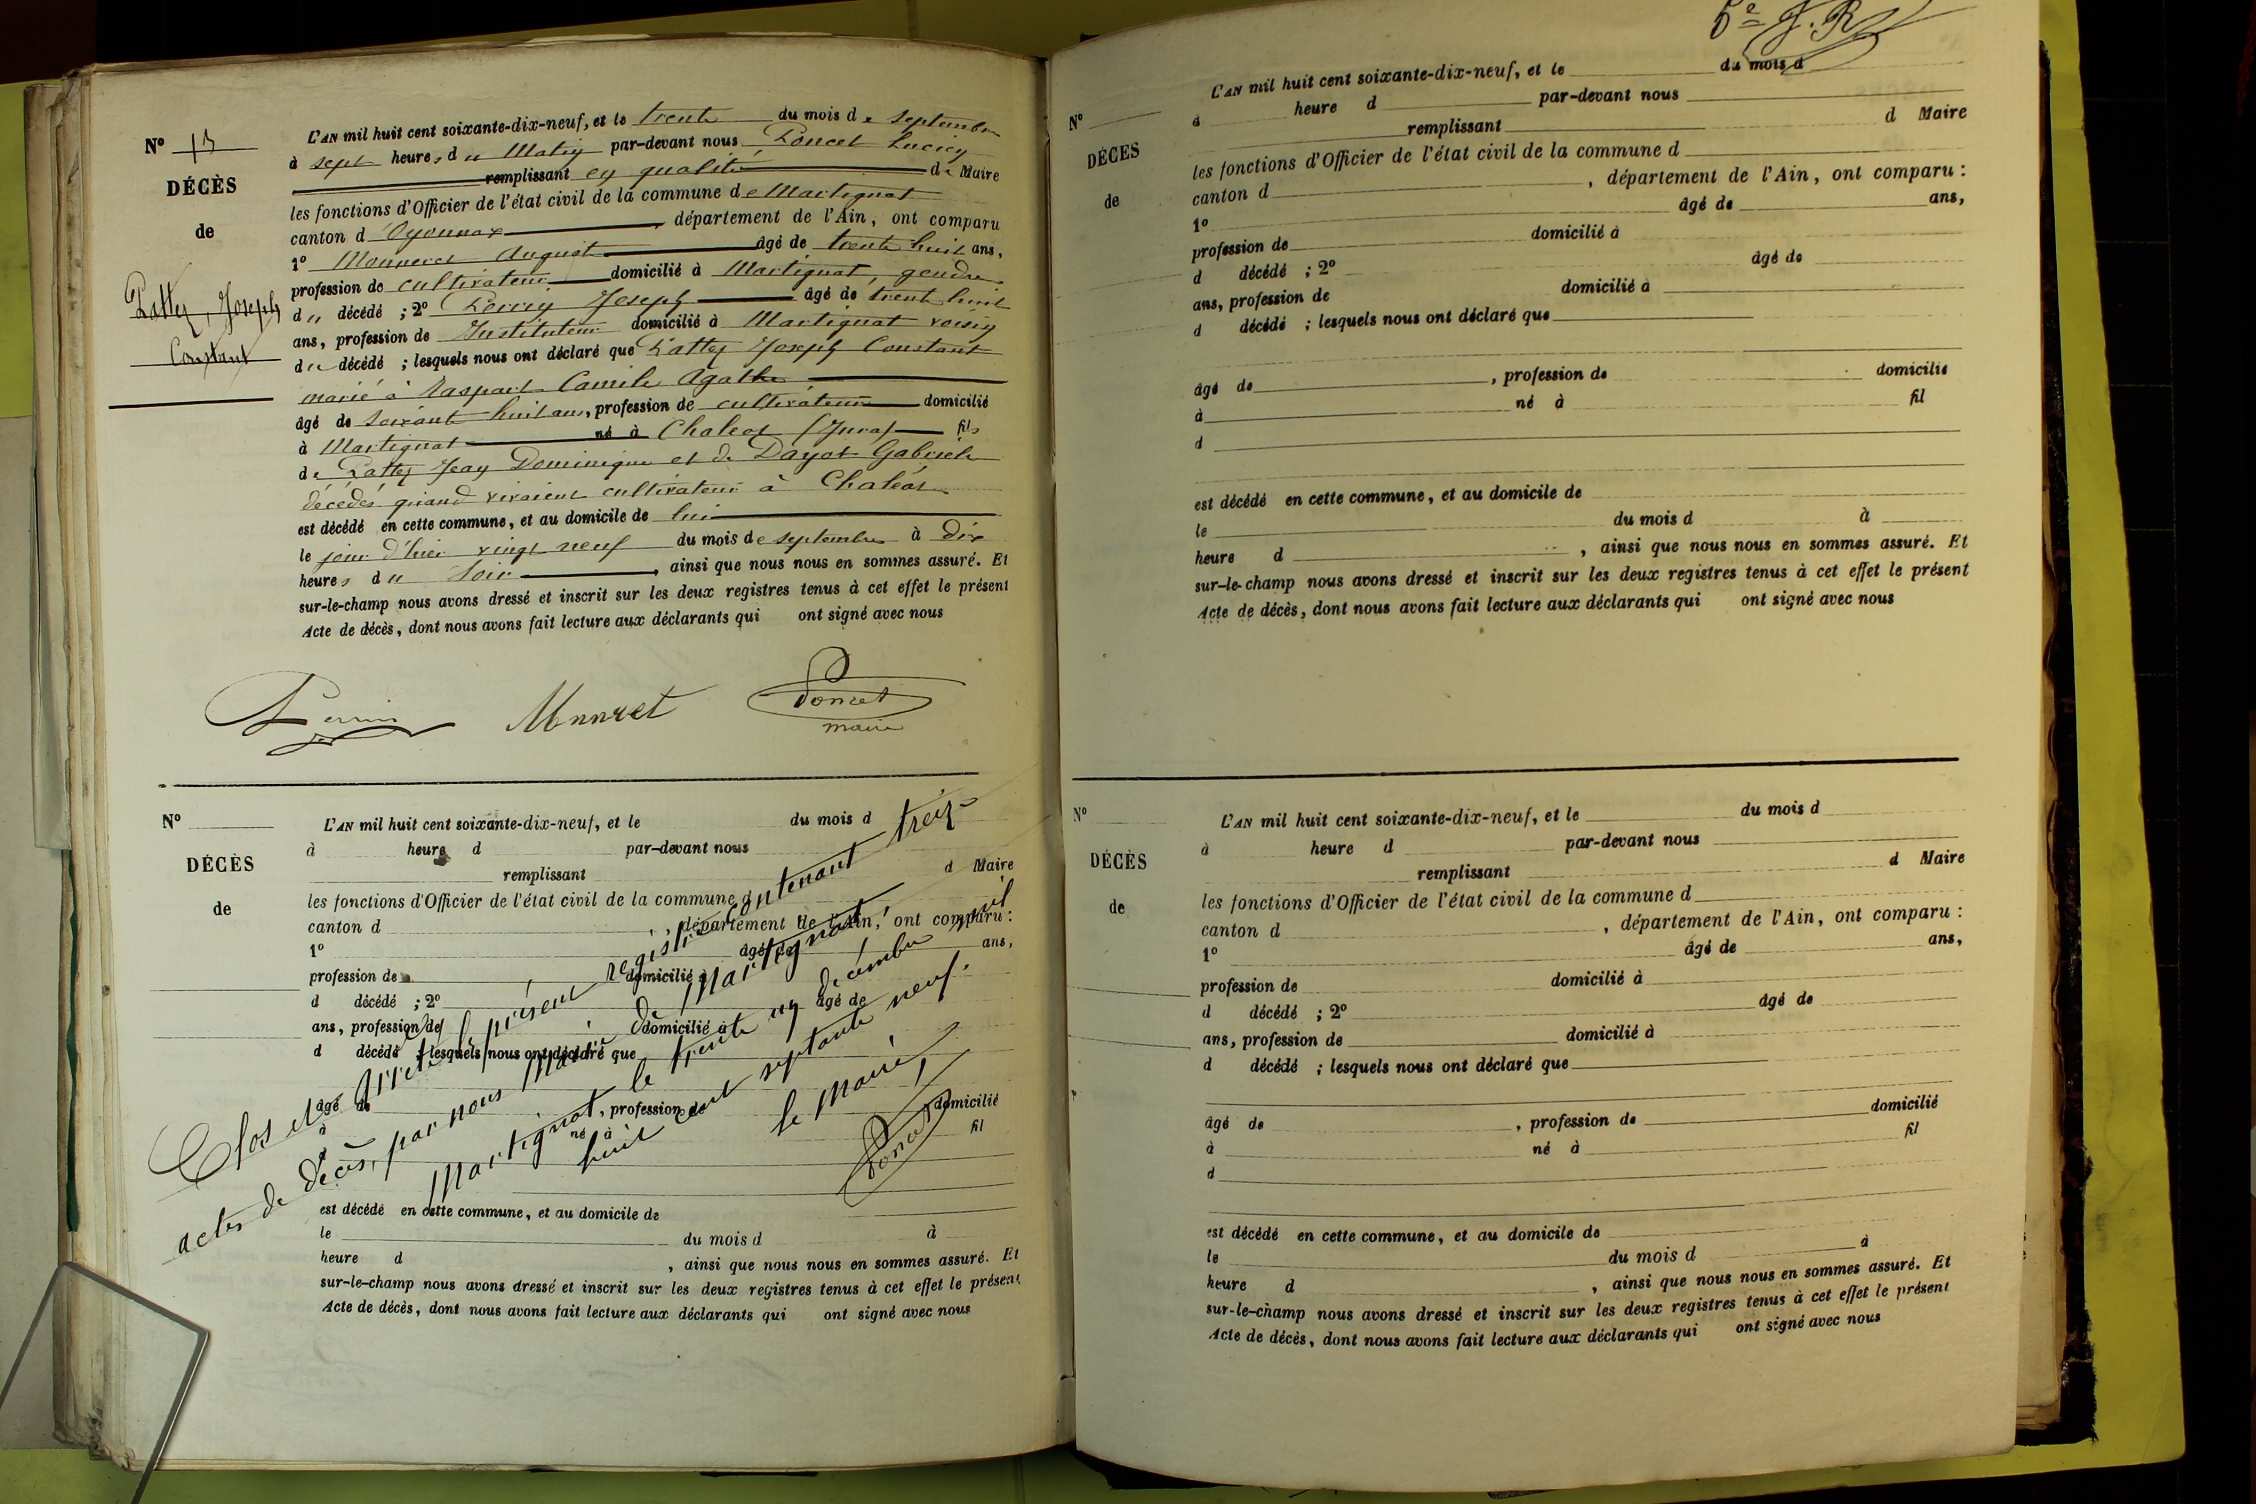 Nº 13
DÉCÈS
de
Lattez, Joseph
Constant
L'AN mil huit cent soixante-dix-neuf, et le trente du mois de septembre
à sept heures du Matin par-devant nous Poncet Lucien
remplissant en qualité de Maire
les fonctions d'Officier de l'état civil de la commune de Martignat
canton d'Oyonnax, département de l'Ain, ont comparu
1º Monneret August âgé de trente huit ans,
profession de cultivateur domicilié à Martignat, gendre
du décédé ; 2º Perrin Joseph âgé de trent huit
ans, profession de Instituteur domicilié à Martignat voisin
du décédé ; lesquels nous ont déclaré que Lattez Joseph Constant
marié à Raspart Camile Agathe
âgé de soixant huit ans, profession de cultivateur domicilié
à Martignat né à Chaleas (Jura) fils
de Lattez Jean Dominique et de Dayot Gabriele
décédés quand vivaient cultivateurs à Chaléas
est décédé en cette commune, et au domicile de lui
le jour d'hier vingt neuf du mois de septembre à dix
heures du soir, ainsi que nous nous en sommes assuré. Et
sur-le-champ nous avons dressé et inscrit sur les deux registres tenus à cet effet le présent
Acte de décès, dont nous avons fait lecture aux déclarants qui ont signé avec nous
Perrin Monnret Poncet
maire
Nº
DÉCÈS
de
L'AN mil huit cent soixante-dix-neuf, et le du mois d
à heure d par-devant nous
remplissant d Maire
les fonctions d'Officier de l'état civil de la commune d
canton d , département de l'Ain, ont comparu :
1º âgé de ans,
profession de domicilié à
d décédé ; 2º âgé de
ans, profession de domicilié à
d décédé ; lesquels nous ont déclaré que
âgé de , profession de domicilié
à né à fil
d
est décédé en cette commune, et au domicile de
le du mois d à
heure d , ainsi que nous nous en sommes assuré. Et
sur-le-champ nous avons dressé et inscrit sur les deux registres tenus à cet effet le présent
Acte de décès, dont nous avons fait lecture aux déclarants qui ont signé avec nous
Clos et arrêté le présent registre contenant treize
actes de décès, par nous Maire de Martignat,
Martignat le trente un décembre mil
huit cent septante neuf.
le Maire,
Poncet
L'AN mil huit cent soixante-dix-neuf, et le du mois d
Nº
DÉCÈS
de
à heure d par-devant nous
remplissant d Maire
les fonctions d'Officier de l'état civil de la commune d
canton d , département de l'Ain, ont comparu :
1º âgé de ans,
profession de domicilié à
d décédé ; 2º âgé de
ans, profession de domicilié à
d décédé ; lesquels nous ont déclaré que
âgé de , profession de domicilié
à né à fil
d
est décédé en cette commune, et au domicile de
le du mois d à
heure d , ainsi que nous nous en sommes assuré. Et
sur-le-champ nous avons dressé et inscrit sur les deux registres tenus à cet effet le présent
Acte de décès, dont nous avons fait lecture aux déclarants qui ont signé avec nous
Nº
DÉCÈS
de
L'AN mil huit cent soixante-dix-neuf, et le du mois d
à heure d par-devant nous
remplissant d Maire
les fonctions d'Officier de l'état civil de la commune d
canton d , département de l'Ain, ont comparu :
1º âgé de ans,
profession de domicilié à
d décédé ; 2º âgé de
ans, profession de domicilié à
d décédé ; lesquels nous ont déclaré que
âgé de , profession de domicilié
à né à fil
d
est décédé en cette commune, et au domicile de
le du mois d à
heure d , ainsi que nous nous en sommes assuré. Et
sur-le-champ nous avons dressé et inscrit sur les deux registres tenus à cet effet le présent
Acte de décès, dont nous avons fait lecture aux déclarants qui ont signé avec nous